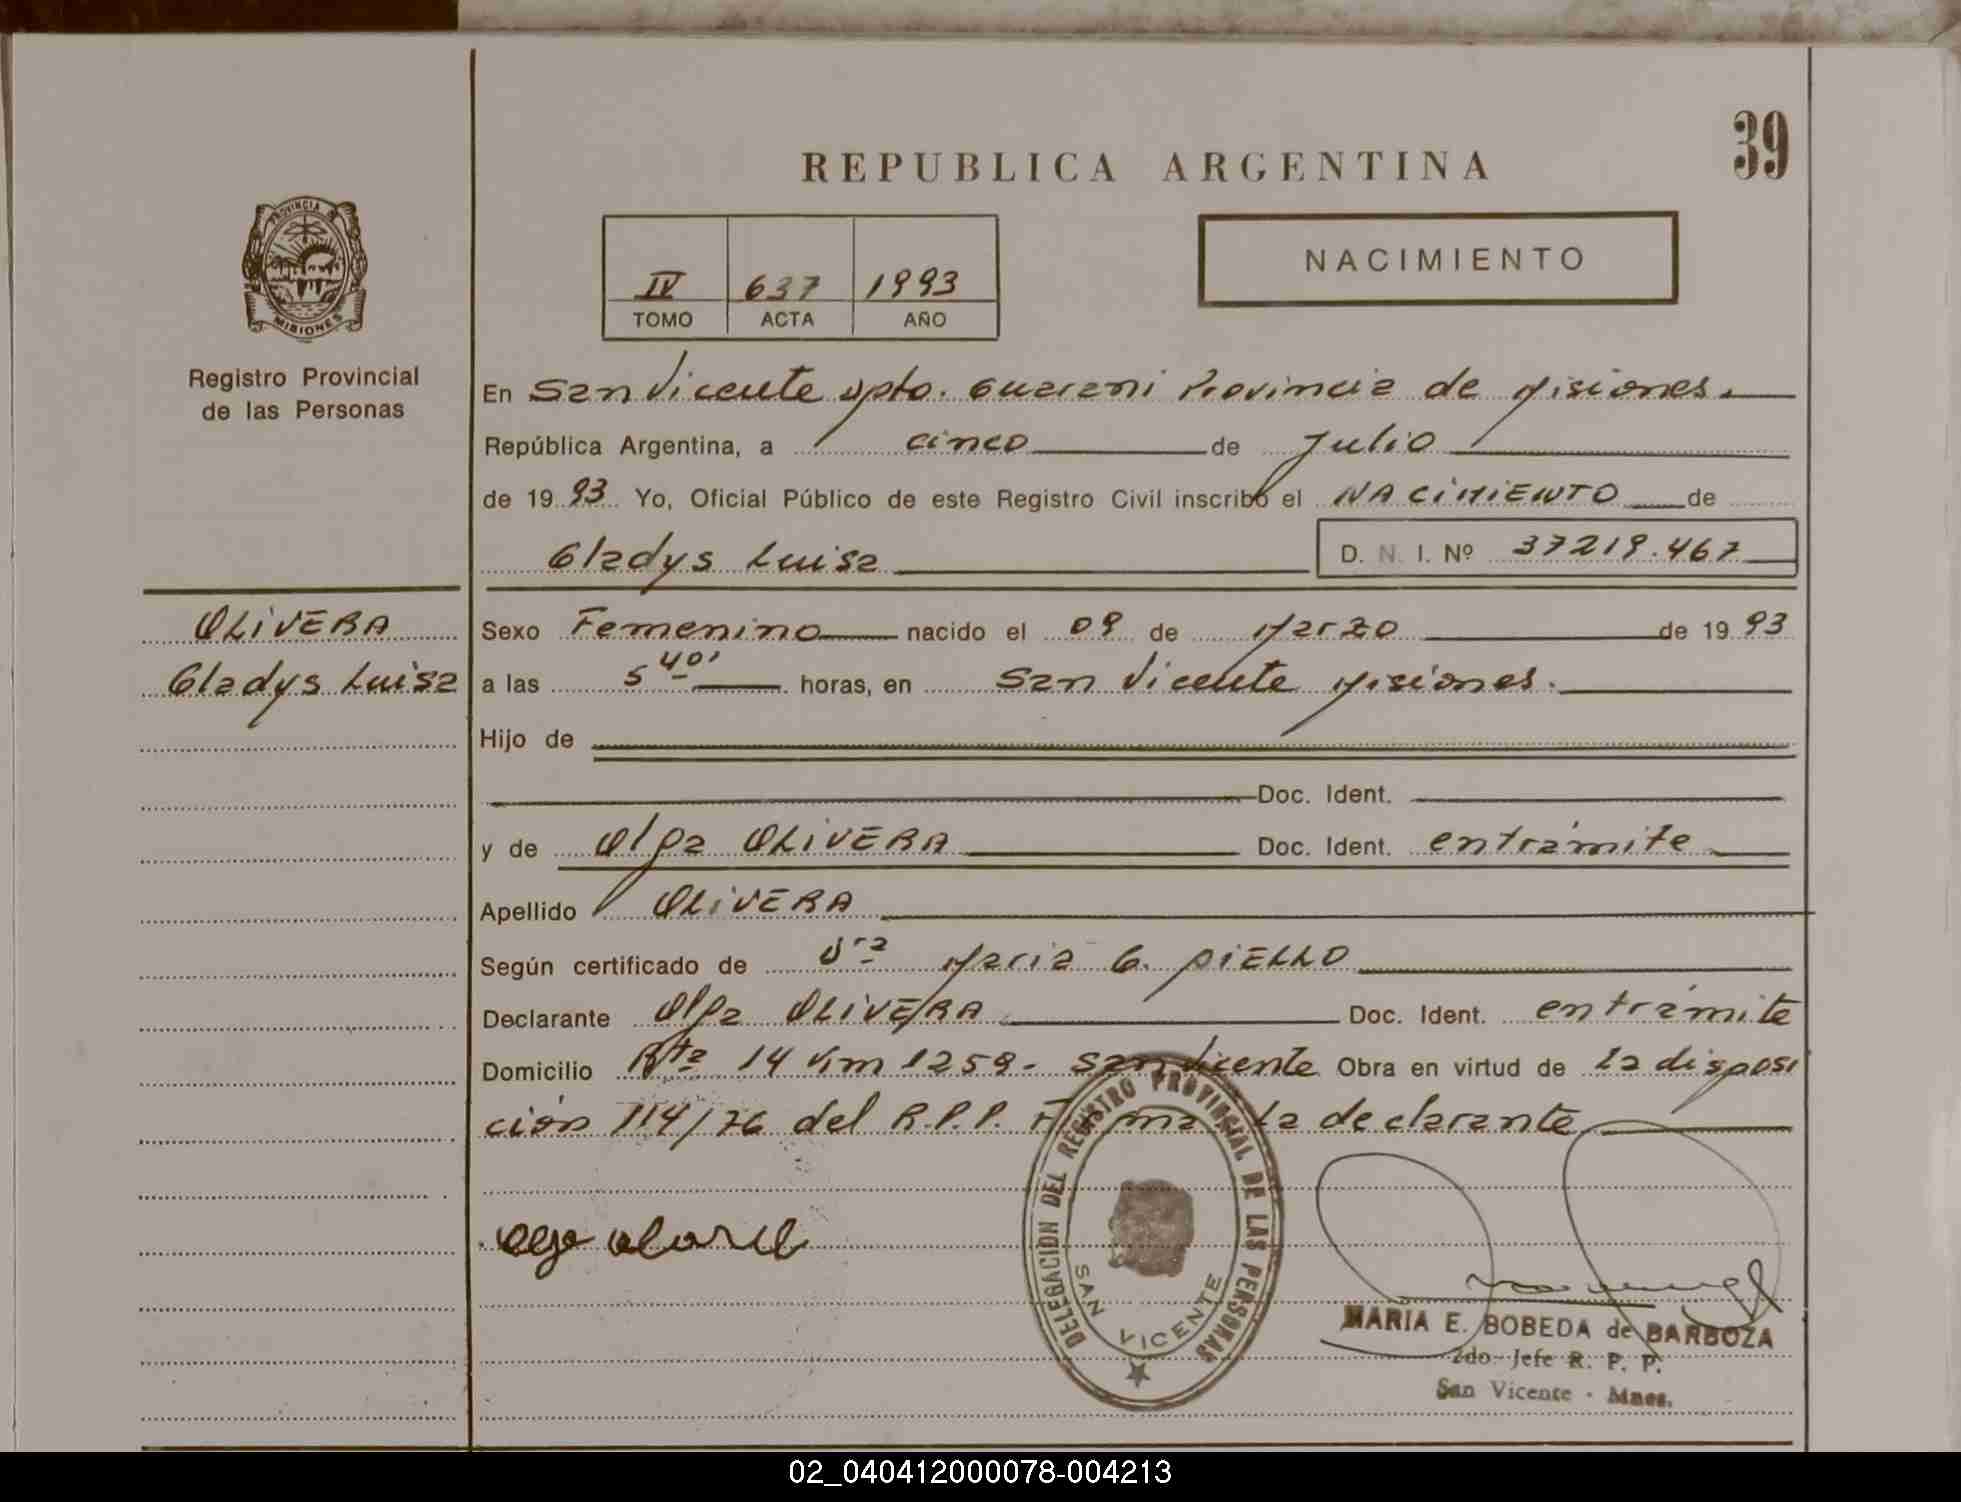 39
REPUBLICA ARGENTINA
PROVINCIA DE
MISIONES
Registro Provincial
de las Personas
IV 637 1993
TOMO ACTA AÑO
NACIMIENTO
En San Vicente Dpto. Guarani Provincia de Misiones.
República Argentina, a cinco de Julio
de 1993 Yo, Oficial Público de este Registro Civil inscribo el NACIMIENTO de
Gladys Luisa D. N. I. Nº 37219.467
OLIVERA
Gladys Luisa
Sexo Femenino nacido el 09 de Marzo de 1993
a las 5 40' horas, en San Vicente Misiones.
Hijo de
Doc. Ident.
y de Olga OLIVERA Doc. Ident. entrámite
Apellido OLIVERA
Según certificado de Dra Maria G. PIELLO
Declarante Olga OLIVERA Doc. Ident. entrámite
Domicilio Rta 14 Km 1259- San Vicente Obra en virtud de la disposi
ción 114/76 del R.P.P. Firma la declarante
DELEGACION DEL REGISTRO PROVINCIAL DE LAS PERSONAS
SAN VICENTE
MARIA E. BOBEDA de BARBOZA
2do. Jefe R. P. P.
San Vicente - Mnes.
02_040412000078-004213